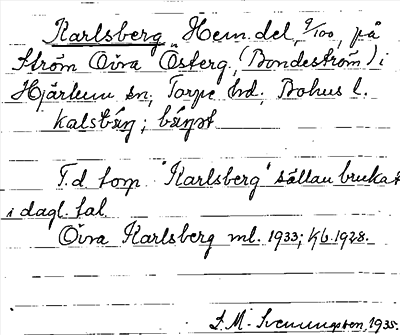 Karlsberg Hem.del, 9/100, på
Ström Övra Österg. (Bondeström) i
Hjärtum sn, Torpe hd, Bohus l.
T.d torp "Karlsberg" sällan brukat
i dagl. tal
Övra Karlsberg ml. 1933; Kb. 1928.
S. M. Svenungsson, 1935.